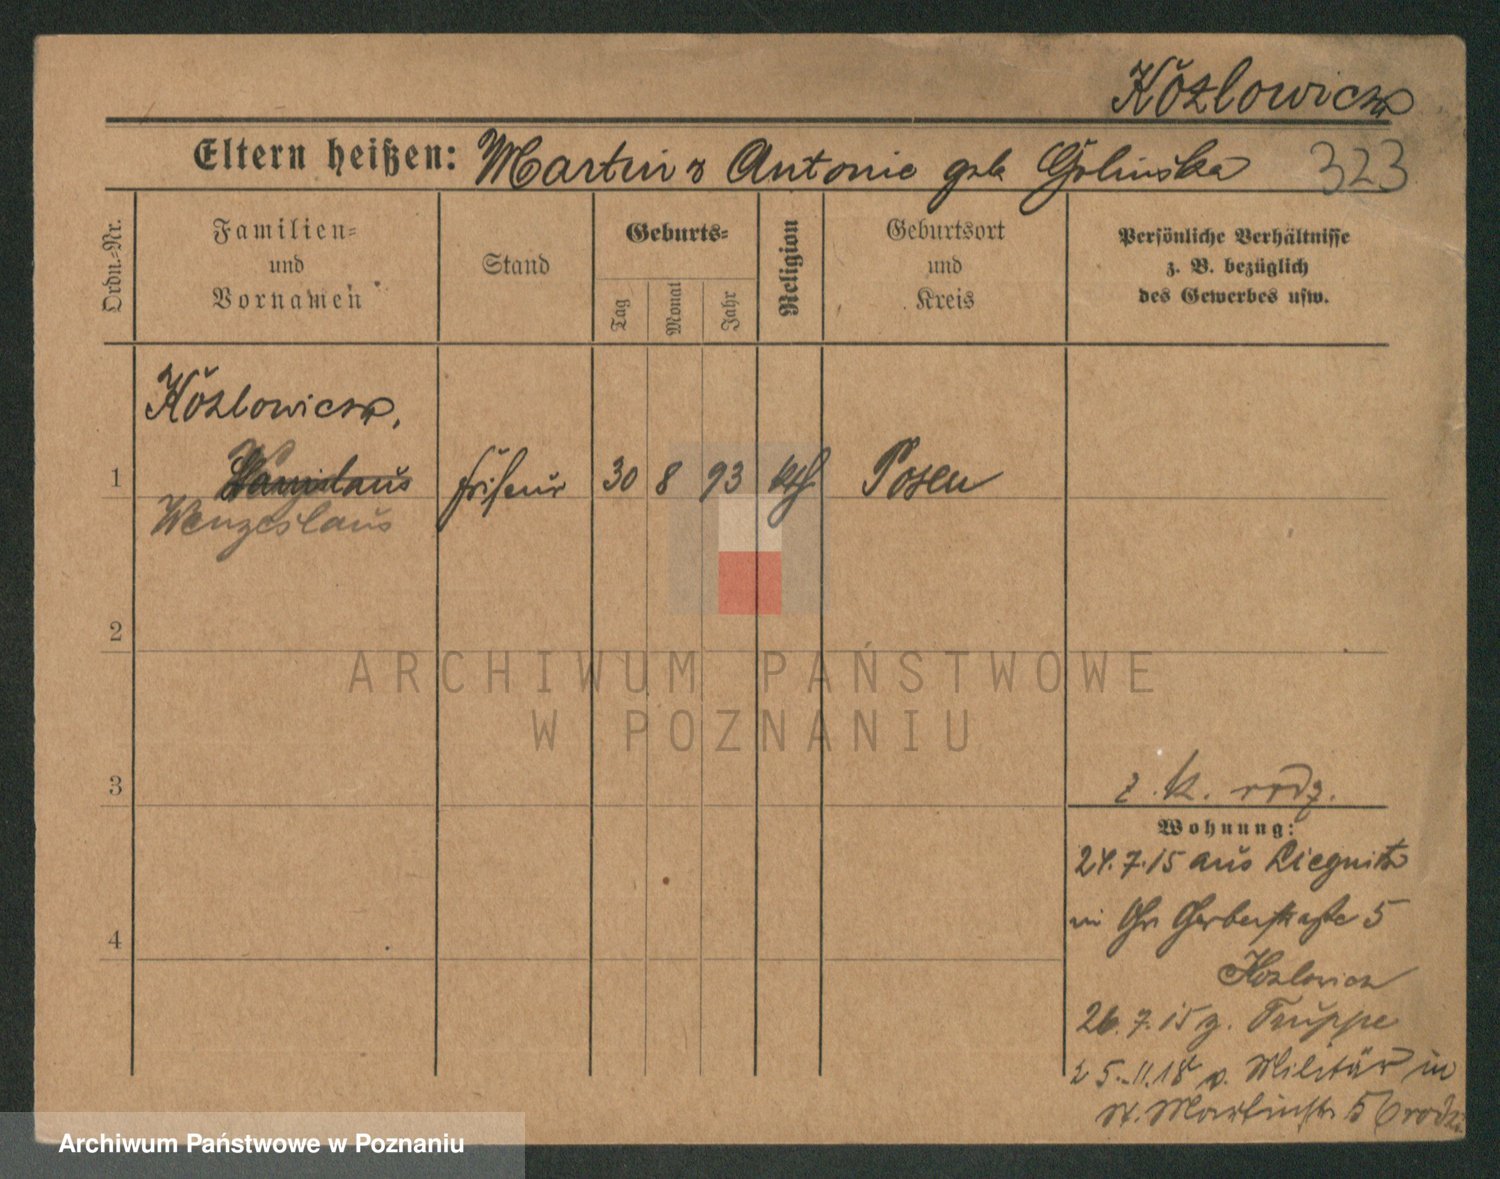 Kozlowicz
Eltern heißen: Martin & Antonie geb Golinska 323
Ordn.-Nr.
Familien-
und
Vornamen
Stand
Geburts-
Tag
Monat
Jahr
Religion
Geburtsort
und
Kreis
Persönliche Verhältnisse
z. B. bezüglich
des Gewerbes usw.
Kozlowicz,
1 friseur 30 8 93 kth Posen
Wenzeslaus
2
3
4
z. k. rodz.
Wohnung:
24.7.15 aus Liegnitz
in Gr Gerberstraße 5
Kozlowicz
26.7.15 z. Truppe
25.11.18 v. Militär in
St. Martinstr 56 rodz.
ARCHIWUM PAŃSTWOWE
W POZNANIU
Archiwum Państwowe w Poznaniu